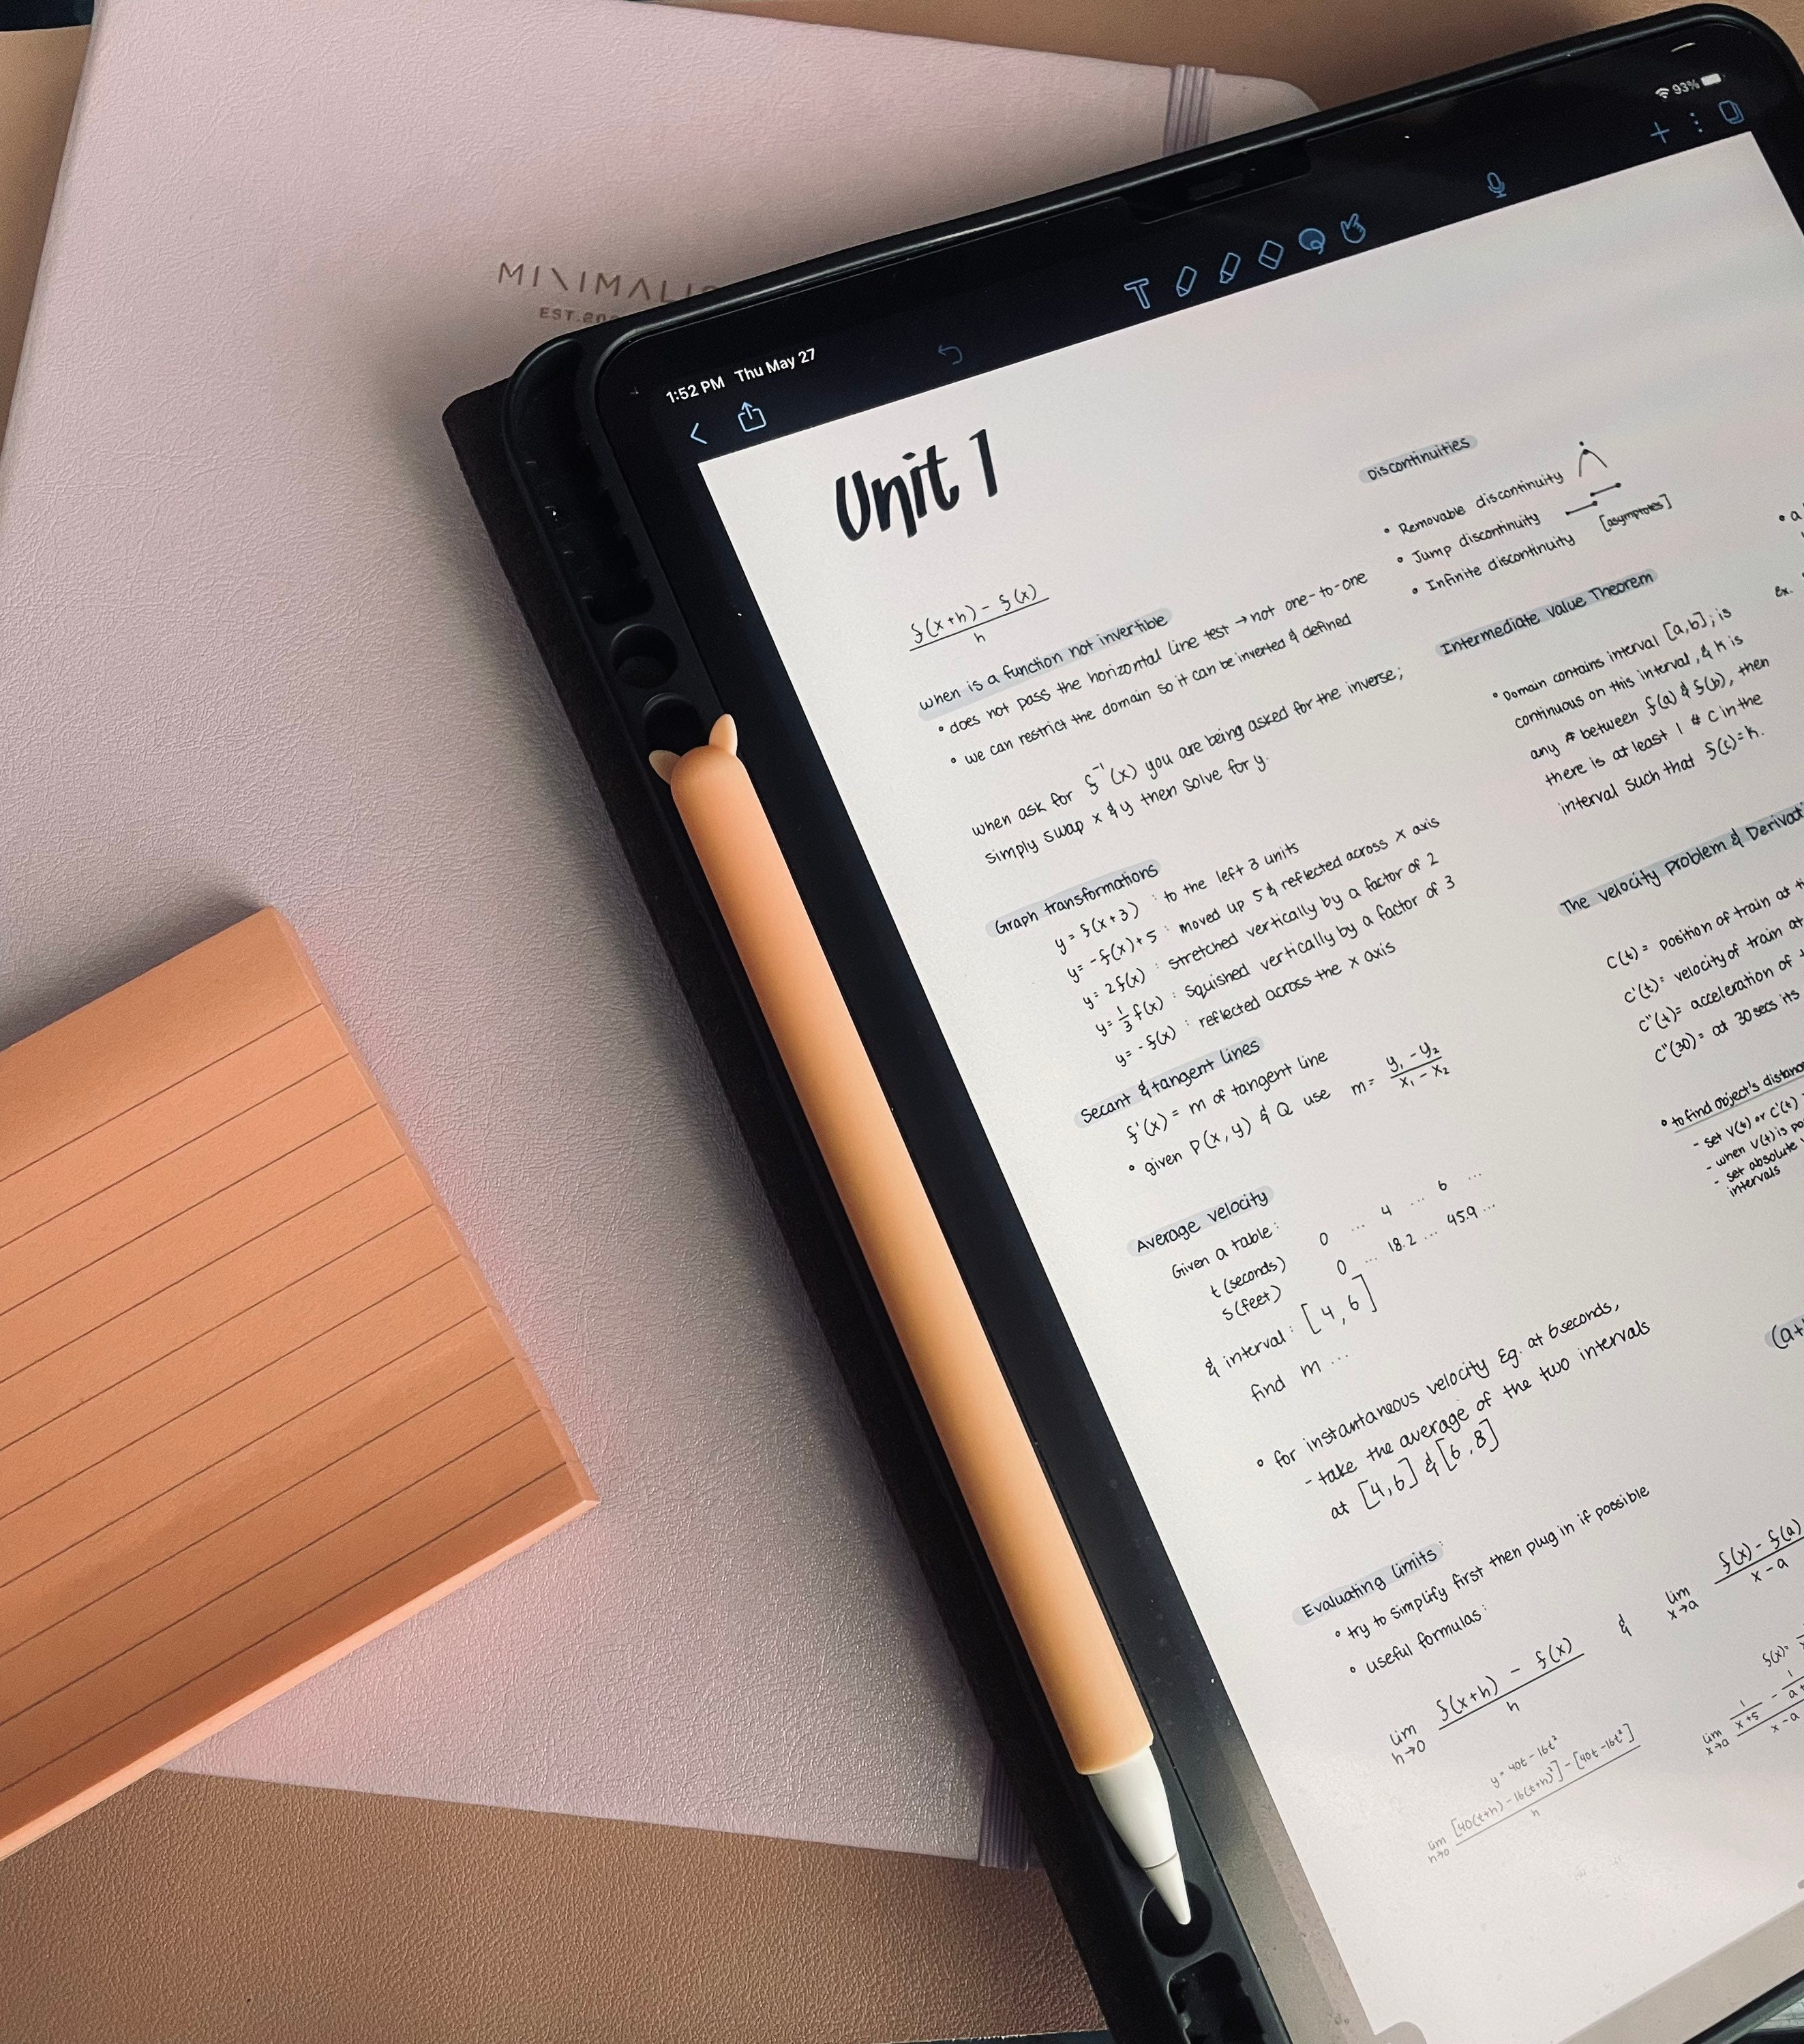 MINIMALIS
EST.20
1:52 PM Thu May 27
93%
Unit 1
f(x+h) - f(x)
h
when is a function not invertible
• does not pass the horizontal line test → not one-to-one
• we can restrict the domain so it can be inverted & defined
when ask for f⁻¹(x) you are being asked for the inverse;
simply swap x & y then solve for y.
Graph transformations
y = f(x+3) : to the left 3 units
y = -f(x)+5 : moved up 5 & reflected across x axis
y = 2f(x) : stretched vertically by a factor of 2
y = 1/3 f(x) : squished vertically by a factor of 3
y = -f(x) : reflected across the x axis
Secant & tangent lines
f'(x) = m of tangent line
• given P(x, y) & Q use m = y₁ - y₂ / x₁ - x₂
Average velocity
Given a table:
t (seconds) 0 ... 4 ... 6 ...
s (feet) 0 ... 18.2 ... 45.9 ...
& interval: [4, 6]
find m ...
• for instantaneous velocity Eg. at 6 seconds,
- take the average of the two intervals
at [4,6] & [6,8]
Evaluating limits:
• try to simplify first then plug in if possible
• useful formulas:
lim h→0 f(x+h) - f(x) / h & lim x→a f(x) - f(a) / x - a
y = 40t - 16t²
lim h→0 [40(t+h) - 16(t+h)²] - [40t - 16t²] / h
f(x) =
lim x→a 1/x+5 - 1/a+ / x - a
Discontinuities
• Removable discontinuity
• Jump discontinuity
• Infinite discontinuity [asymptotes]
Intermediate Value Theorem
• Domain contains interval [a,b]; is
continuous on this interval, & K is
any # between f(a) & f(b), then
there is at least 1 # c in the
interval such that f(c)=K.
The velocity problem & Derivat
C(t) = position of train at ti
C'(t) = velocity of train at
C''(t) = acceleration of t
C''(30) = at 30 secs its
• to find object's distanc
- set V(t) or C'(t) =
- when V(t) is po
- set absolute v
intervals
• a
Ex.
(a+